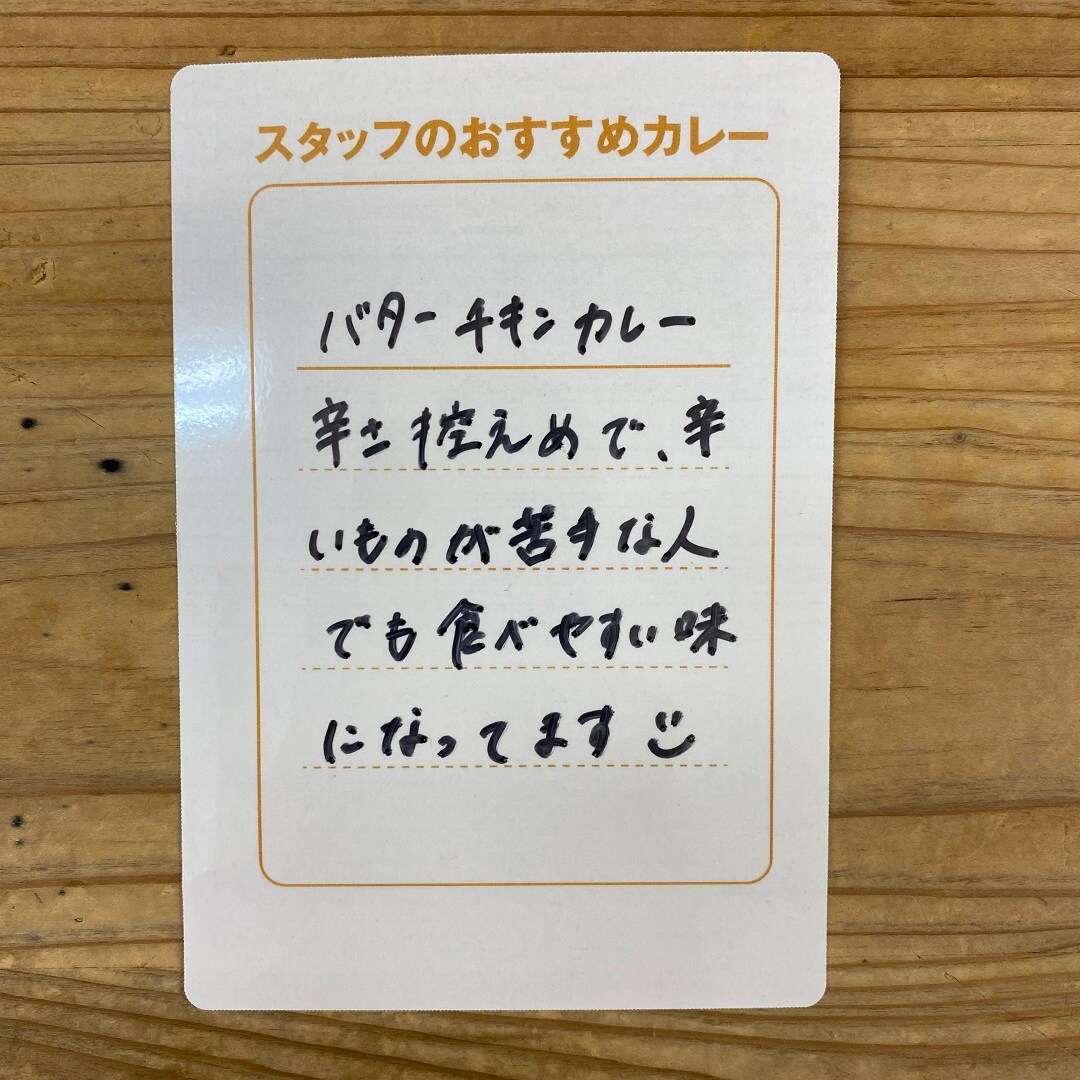 スタッフのおすすめカレー
バターチキンカレー
辛さ控えめで、辛
いものが苦手な人
でも食べやすい味
になってます